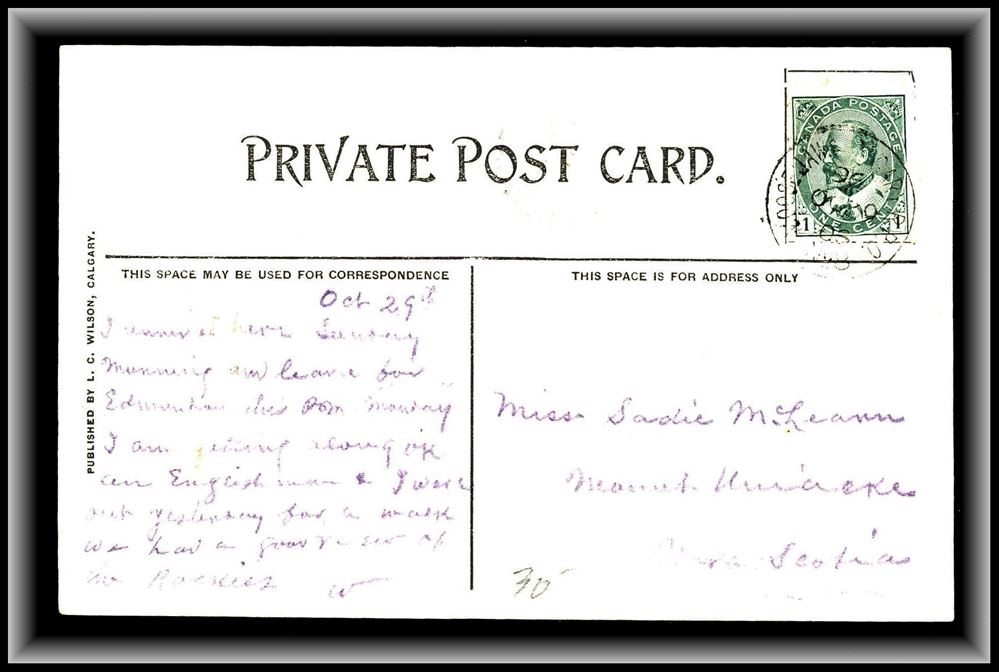 PRIVATE POST CARD.
CANADA POSTAGE
ONE CENT
1 1
PUBLISHED BY L. C. WILSON, CALGARY.
THIS SPACE MAY BE USED FOR CORRESPONDENCE
Oct 29th
I here Sunday
Morning and leave for
Edmonton this P.M. Monday
I am getting along ok
an Englishman & I were
out yesterday for a walk
we had a good view of
the Rockies W
THIS SPACE IS FOR ADDRESS ONLY
Miss Sadie McLeann
Mount Uniacke
Nova Scotia
30